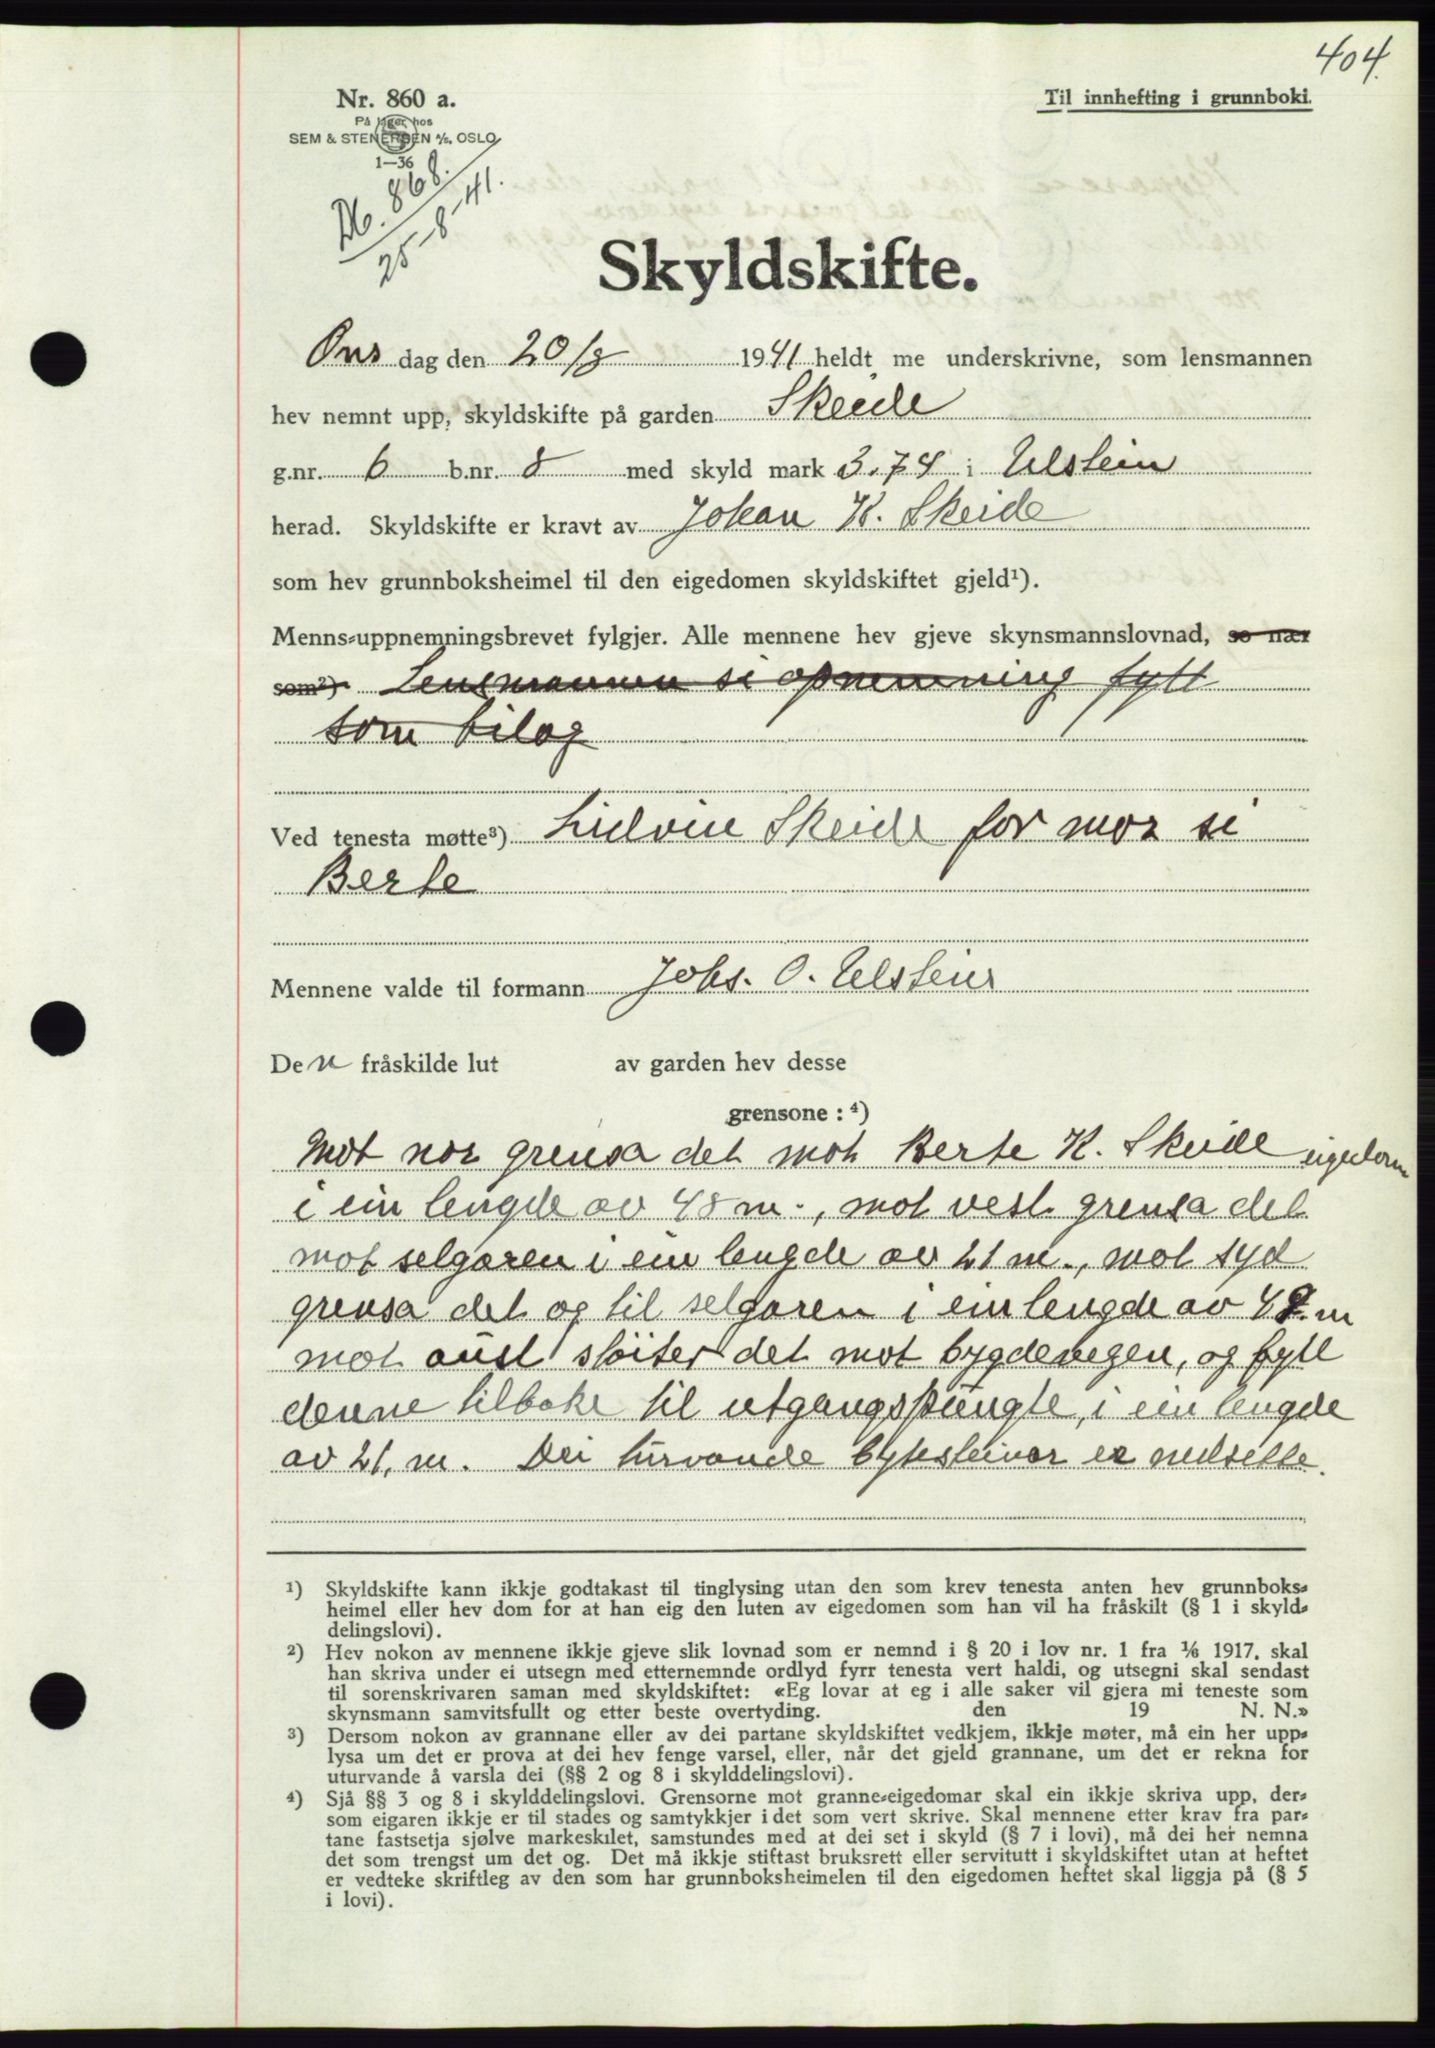 404.
Nr. 860 a.
Til innhefting i grunnboki.
På lager hos
SEM & STENERSEN A/S, OSLO
1—36
Db. 868.
25-8-41.
Skyldskifte.
Ons dag den 20/8 1941 heldt me underskrivne, som lensmannen
hev nemnt upp, skyldskifte på garden Skeide
g.nr. 6 b.nr. 8 med skyld mark 3.74 i Ulstein
herad. Skyldskifte er kravt av Johan K. Skeide
som hev grunnboksheimel til den eigedomen skyldskiftet gjeld¹).
Menns-uppnemningsbrevet fylgjer. Alle mennene hev gjeve skynsmannslovnad, so nær
som²) Lensmannen si opnemning fylt
som bilag
Ved tenesta møtte³) Lidvin Skeide for mor si
Berte
Mennene valde til formann Johs. O. Ulstein
Den fråskilde lut av garden hev desse
grensone: ⁴)
Mot nor grensa det mot Berte K. Skeide eigedom
i ein lengde av 48 m., mot vest grensa det
mot selgaren i ein lengde av 21 m., mot syd
grensa det og til selgaren i ein lengde av 48. m
mot aust støiter det mot bygdevegen, og fylt
denne tilbake til utgangspungte, i ein lengde
av 21. m. Dei turvande bytesteinar er nedsette.
¹) Skyldskifte kann ikkje godtakast til tinglysing utan den som krev tenesta anten hev grunnboks-
heimel eller hev dom for at han eig den luten av eigedomen som han vil ha fråskilt (§ 1 i skyld-
delingslovi).
²) Hev nokon av mennene ikkje gjeve slik lovnad som er nemnd i § 20 i lov nr. 1 fra 1/6 1917, skal
han skriva under ei utsegn med etternemnde ordlyd fyrr tenesta vert haldi, og utsegni skal sendast
til sorenskrivaren saman med skyldskiftet: «Eg lovar at eg i alle saker vil gjera mi teneste som
skynsmann samvitsfullt og etter beste overtyding. den 19 N. N.»
³) Dersom nokon av grannane eller av dei partane skyldskiftet vedkjem, ikkje møter, må ein her upp-
lysa um det er prova at dei hev fenge varsel, eller, når det gjeld grannane, um det er rekna for
uturvande å varsla dei (§§ 2 og 8 i skylddelingslovi).
⁴) Sjå §§ 3 og 8 i skylddelingslovi. Grensorne mot granne-eigedomar skal ein ikkje skriva upp, der-
som eigaren ikkje er til stades og samtykkjer i det som vert skrive. Skal mennene etter krav fra par-
tane fastsetja sjølve markeskilet, samstundes med at dei set i skyld (§ 7 i lovi), må dei her nemna
det som trengst um det og. Det må ikkje stiftast bruksrett eller servitutt i skyldskiftet utan at heftet
er vedteke skriftleg av den som har grunnboksheimelen til den eigedomen heftet skal liggja på (§ 5
i lovi).